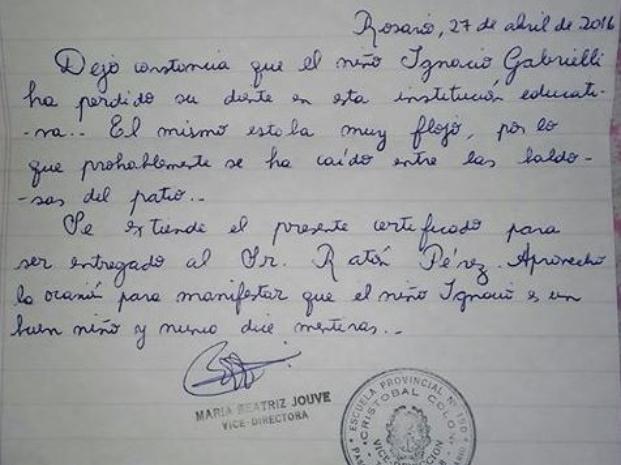 Rosario, 27 de abril de 2016
Dejo constancia que el niño Ignacio Gabrielli
ha perdido su diente en esta institución educati-
-va.. El mismo estaba muy flojo, por lo
que probablemente se ha caído entre las baldo-
-sas del patio..
Se extiende el presente certificado para
ser entregado al Sr. Ratón Pérez. Aprovecho
la ocasión para manifestar que el niño Ignacio es un
buen niño y nunca dice mentiras..
MARIA BEATRIZ JOUVE
VICE-DIRECTORA
ESCUELA PROVINCIAL Nº
CRISTOBAL COLON